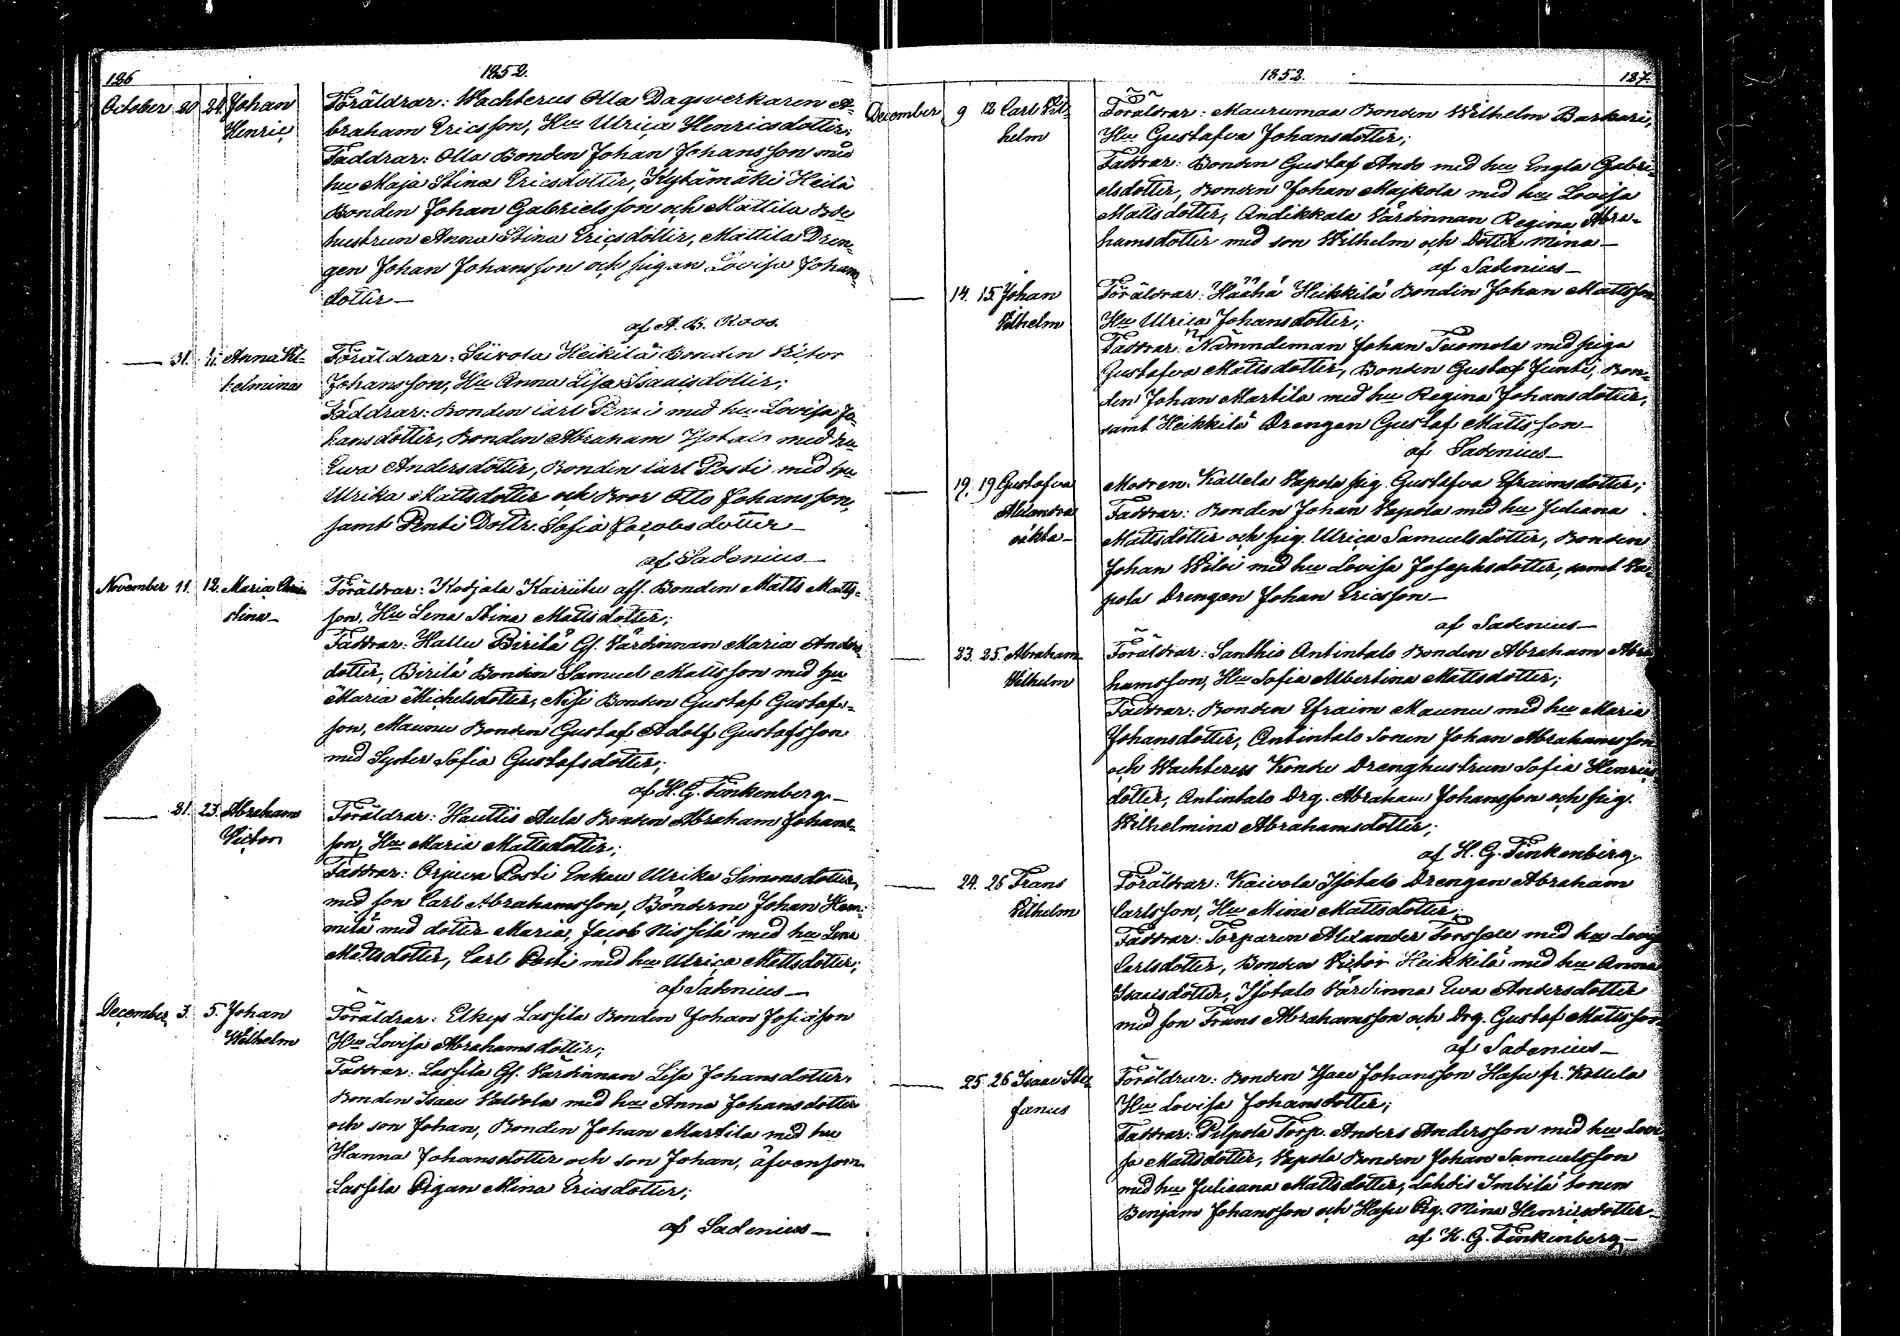 126
1852.
October 20 24. Johan Henric
Föräldrar: Wachterus Olla Dagsverkaren A-
braham Ericsson, Hu Ulrica Henricsdotter;
Faddrar: Olla Bonden Johan Johansson med
hu Maja Stina Ericsdotter, Kytämäki Heilä
Bonden Johan Gabrielsson och Mattila Bde
hustrun Anna Stina Ericsdotter, Mattila Dren-
gen Johan Johansson och pigan Lovisa Johans-
dotter —
af A. B. Roos.
— 31. Anna Vil-helmina
Föräldrar: Sũvola Heikilä Bonden Victor
Johansson, Hu Anna Lisa Isaacsdotter;
Faddrar: Bonden Carl Penti med hu Lovisa Jo-
hansdotter, Bonden Abraham Isotalo med hu
Ewa Andersdotter, Bonden Carl Posti med hu
Ulrika Mattsdotter och Bror Otto Johansson,
samt Penti Dottr. Sofia Jacobsdotter —
af Sadenius —
November 11. 12. Maria Chri-stina —
Föräldrar: Kodjala Kairitu aff. Bonden Matts Matts-
son, Hu Lena Stina Mattsdotter;
Faddrar: Hallu Birilä Gf. Värdinnan Maria Anders-
dotter, Birilä Bonden Samuel Mattsson med hu
Maria Michelsdotter, Nesi Bonden Gustaf Gustafs-
son, Maunu Bonden Gustaf Adolf Gustafsson
med Syster Sofia Gustafsdotter;
af H. G. Finkenberg —
— 21. 23. Abraham Victor
Föräldrar: Hauttis Aula Bonden Abraham Johans-
son, Hu Maria Mattsdotter;
Faddrar: Orjwa Posti Enkan Ulrika Simonsdotter,
med son Carl Abrahamsson, Bönderne Johan Hem-
milä med dotter Maria, Jacob Nissilä med hu Lena
Mattsdotter, Carl Posti med hu Ulrica Mattsdotter;
af Sadenius —
December 3. 5. Johan Wilhelm
Föräldrar: Elkys Lassila Bonden Johan Josiasson
Hu Lovisa Abrahamsdotter;
Faddrar: Lassila Gf. Värdinnan Lisa Johansdotter,
Bonden Isaac Valdola med hu Anna Johansdotter
och son Johan, Bonden Johan Martila med hu
Hanna Johansdotter och son Johan, äfvensom
Lassila Pigan Mina Ericsdotter;
af Sadenius —
1852.
127.
December 9 12 Carl Vil-helm
Föräldrar: Maurumaa Bonden Wilhelm Barkari,
Hu Gustafva Johansdotter;
Faddrar: Bonden Gustaf Ando med hu Engla Gabri-
elsdotter, Bonden Johan Majkola med hu Lovisa
Mattsdotter, Andikkala Värdinnan Regina Abra-
hamsdotter med son Wilhelm och Dotter Mina —
af Sadenius —
— 14. 15. Johan Vilhelm
Föräldrar: Häähä Heikkilä Bonden Johan Mattsson
Hu Ulrica Johansdotter;
Faddrar: Nämndeman Johan Tuomola med piga
Gustafva Mattsdotter, Bonden Gustaf Junti, Bon-
den Johan Martila med hu Regina Johansdotter,
samt Heikkilä Drengen Gustaf Mattsson —
af Sadenius —
— 19. 19 Gustafva Alexandra oäkta —
Modren: Kallela Vapola pig. Gustafva Efraimsdotter;
Faddrar: Bonden Johan Vapola med hu Juliana
Mattsdotter och pig. Ulrica Samuelsdotter, Bonden
Johan Wiloi med hu Lovisa Josephsdotter, samt Va-
pola Drengen Johan Ericsson —
af Sadenius —
— 23. 25. Abraham Wilhelm
Föräldrar: Santhio Antintalo Bonden Abraham Abra-
hamsson, Hu Sofia Albertina Mattsdotter;
Faddrar: Bonden Efraim Maunu med hu Maria
Johansdotter, Antintalo Sonen Johan Abrahamsson
och Wachterus Kondu Drenghustrun Sofia Henrics-
dotter, Antintalo Drg. Abraham Johansson och pig.
Wilhelmina Abrahamsdotter;
af H. G. Finkenberg.
— 24. 26 Frans Vilhelm
Föräldrar: Kaivola Isotalo Drengen Abraham
Carlsson, Hu Mina Mattsdotter;
Faddrar: Torparen Alexander Forssell med hu
Carlsdotter, Bonden Victor Heikkilä med hu Anna
Isaacsdotter, Isotalo Värdinna Ewa Andersdotter
med son Frans Abrahamsson och Drg. Gustaf Mattsson
af Sadenius —
— 25 26 Isaac Ste-fanus
Föräldrar: Bonden Isaac Johansson Hasu fr. Kallela
Hu Lovisa Johansdotter;
Faddrar: Pilpola Torp. Anders Andersson med hu Lovi-
sa Mattsdotter, Vapola Bonden Johan Samuelsson
med hu Juliaana Mattsdotter, Lahdis Imbilä sonen
Benjam Johansson och Hasu Pig. Mina Henricsdotter —
af H. G. Finkenberg —